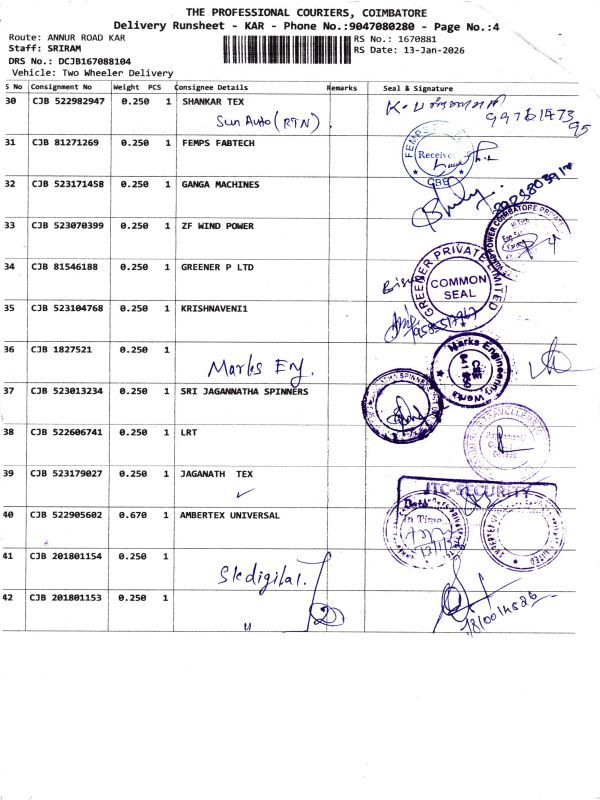 THE PROFESSIONAL COURIERS, COIMBATORE
Delivery Runsheet - KAR - Phone No.:9047080280 - Page No.:4
Route: ANNUR ROAD KAR
RS No.: 1670881
Staff: SRIRAM
RS Date: 13-Jan-2026
DRS No.: DCJB167088104
Vehicle: Two Wheeler Delivery
S No Consignment No Weight PCS Consignee Details Remarks Seal & Signature
30 CJB 522982947 0.250 1 SHANKAR TEX
Sun Auto (RTN)
31 CJB 81271269 0.250 1 FEMPS FABTECH
Receive
32 CJB 523171458 0.250 1 GANGA MACHINES
33 CJB 523070399 0.250 1 ZF WIND POWER
34 CJB 81546188 0.250 1 GREENER P LTD
GREENER PRIVATE LIMITED
COMMON
SEAL
35 CJB 523104768 0.250 1 KRISHNAVENI1
36 CJB 1827521 0.250 1
Marks Eng.
Marks Engineering Works
37 CJB 523013234 0.250 1 SRI JAGANNATHA SPINNERS
38 CJB 522606741 0.250 1 LRT
39 CJB 523179027 0.250 1 JAGANATH TEX
JTC-SECURITY
40 CJB 522905602 0.670 1 AMBERTEX UNIVERSAL
In Time
41 CJB 201801154 0.250 1
Skdigital.
42 CJB 201801153 0.250 1
"